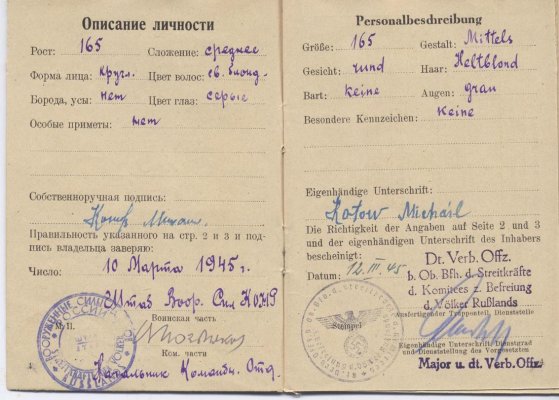 Описание личности
Рост: 165 Сложение: среднее
Форма лица: кругл. Цвет волос: св. блонд.
Борода, усы: нет Цвет глаз: серые
Особые приметы: нет
Собственноручная подпись:
Правильность указанного на стр. 2 и 3 и под-
пись владельца заверяю:
Число: 10 Марта 1945 г.
Штаб Воор. Сил КОНР
Воинская часть
М.П.
Ком. части
Начальник Команди. Отд.
4
Personalbeschreibung
Größe: 165 Gestalt: Mittels
Gesicht: rund Haar: Heltblond
Bart: keine Augen: grau
Besondere Kennzeichen: keine
Eigenhändige Unterschrift:
Kotow Michail
Die Richtigkeit der Angaben auf Seite 2 und 3
und der eigenhändigen Unterschrift des Inhabers
bescheinigt:
Datum: 12. III. 45
Dt. Verb. Offz.
b. Ob. Bfh. d. Streitkräfte
d. Komitees z. Befreiung
d. Völker Rußlands
Ausfertigender Truppenteil, Dienststelle
Stempel
Eigenhändige Unterschrift, Dienstgrad
und Dienststellung des Vorgesetzten
Major u. dt. Verb. Offz.